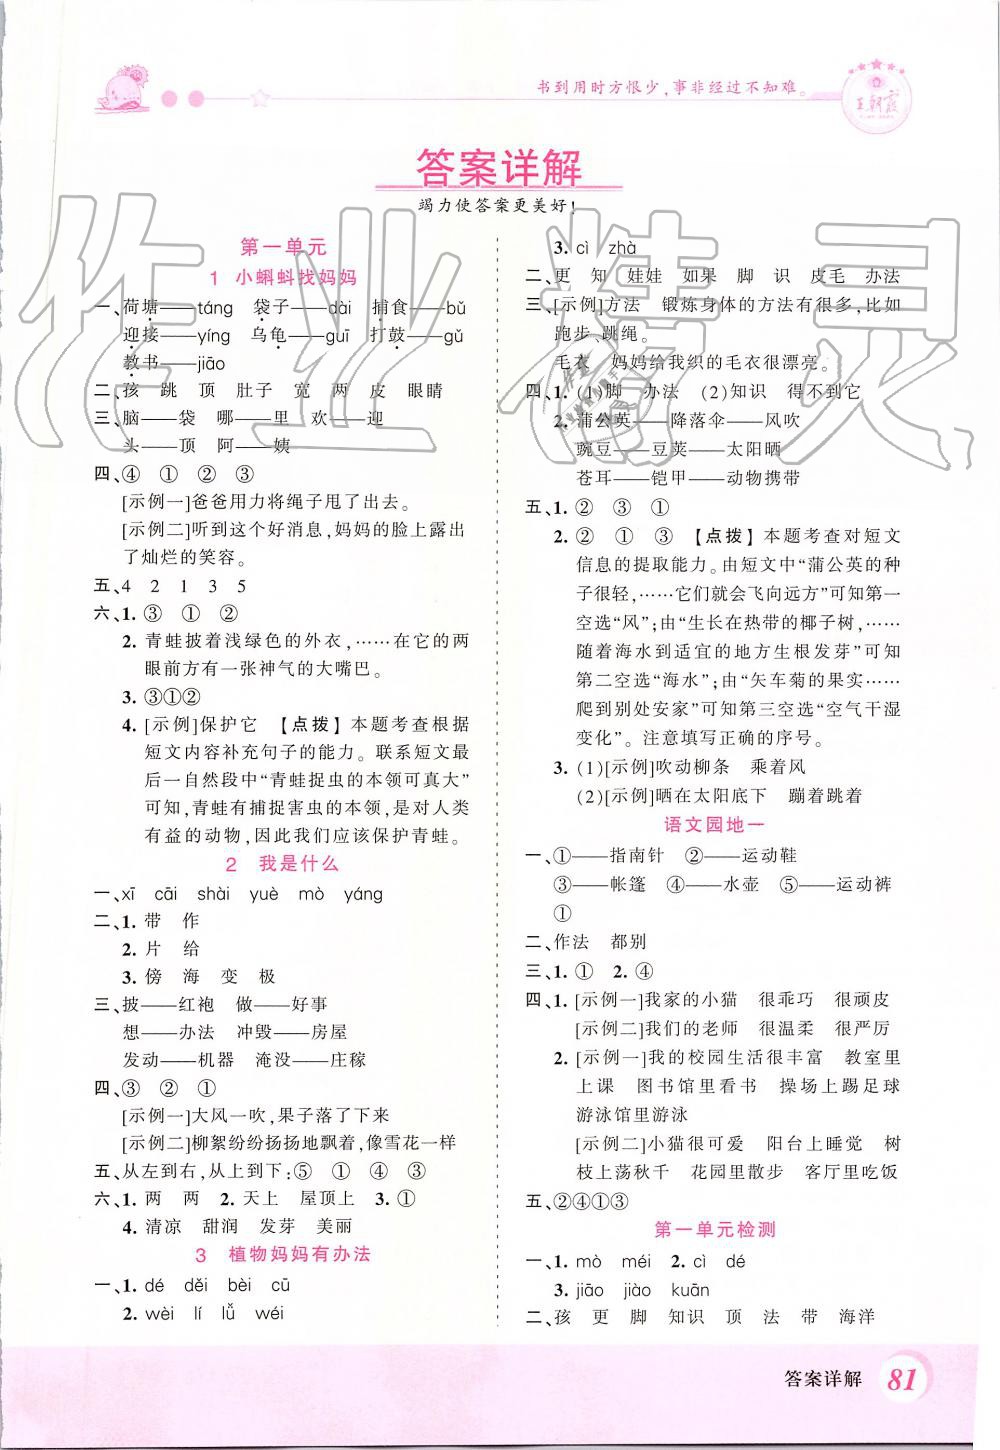 书到用时方恨少,事非经过不知难。
王朝霞
答案详解
竭力使答案更美好!
第一单元
1 小蝌蚪找妈妈
一、荷塘——táng 袋子——dài 捕食——bǔ
迎接——yíng 乌龟——guī 打鼓——gǔ
教书——jiāo
二、孩 跳 顶 肚子 宽 两 皮 眼睛
三、脑——袋 哪——里 欢——迎
头——顶 阿——姨
四、④ ① ② ③
[示例一]爸爸用力将绳子甩了出去。
[示例二]听到这个好消息,妈妈的脸上露出
了灿烂的笑容。
五、4 2 1 3 5
六、1. ③ ① ②
2. 青蛙披着浅绿色的外衣,……在它的两
眼前方有一张神气的大嘴巴。
3. ③①②
4. [示例]保护它 【点拨】本题考查根据
短文内容补充句子的能力。联系短文最
后一自然段中“青蛙捉虫的本领可真大”
可知,青蛙有捕捉害虫的本领,是对人类
有益的动物,因此我们应该保护青蛙。
2 我是什么
一、xī cāi shài yuè mò yáng
二、1. 带 作
2. 片 给
3. 傍 海 变 极
三、披——红袍 做——好事
想——办法 冲毁——房屋
发动——机器 淹没——庄稼
四、③ ② ①
[示例一]大风一吹,果子落了下来
[示例二]柳絮纷纷扬扬地飘着,像雪花一样
五、从左到右,从上到下:⑤ ① ④ ③
六、1. 两 两 2. 天上 屋顶上 3. ①
4. 清凉 甜润 发芽 美丽
3 植物妈妈有办法
一、1. dé děi bèi cū
2. wèi lí lǚ wéi
3. cì zhà
二、更 知 娃娃 如果 脚 识 皮毛 办法
三、[示例]方法 锻炼身体的方法有很多,比如
跑步、跳绳。
毛衣 妈妈给我织的毛衣很漂亮。
四、1. (1)脚 办法 (2)知识 得不到它
2. 蒲公英——降落伞——风吹
豌豆——豆荚——太阳晒
苍耳——铠甲——动物携带
五、1. ② ③ ①
2. ② ① ③ 【点拨】本题考查对短文
信息的提取能力。由短文中“蒲公英的种
子很轻,……它们就会飞向远方”可知第一
空选“风”;由“生长在热带的椰子树,……
随着海水到适宜的地方生根发芽”可知
第二空选“海水”;由“矢车菊的果实……
爬到别处安家”可知第三空选“空气干湿
变化”。注意填写正确的序号。
3. (1)[示例]吹动柳条 乘着风
(2)[示例]晒在太阳底下 蹦着跳着
语文园地一
一、①——指南针 ②——运动鞋
③——帐篷 ④——水壶 ⑤——运动裤
①
二、作法 都别
三、1. ① 2. ④
四、1. [示例一]我家的小猫 很乖巧 很顽皮
[示例二]我们的老师 很温柔 很严厉
2. [示例一]我的校园生活很丰富 教室里
上课 图书馆里看书 操场上踢足球
游泳馆里游泳
[示例二]小猫很可爱 阳台上睡觉 树
枝上荡秋千 花园里散步 客厅里吃饭
五、②④①③
第一单元检测
一、1. mò méi 2. cì dé
3. jiāo jiào kuān
二、孩 更 脚 知识 顶 法 带 海洋
答案详解 81
作业精灵